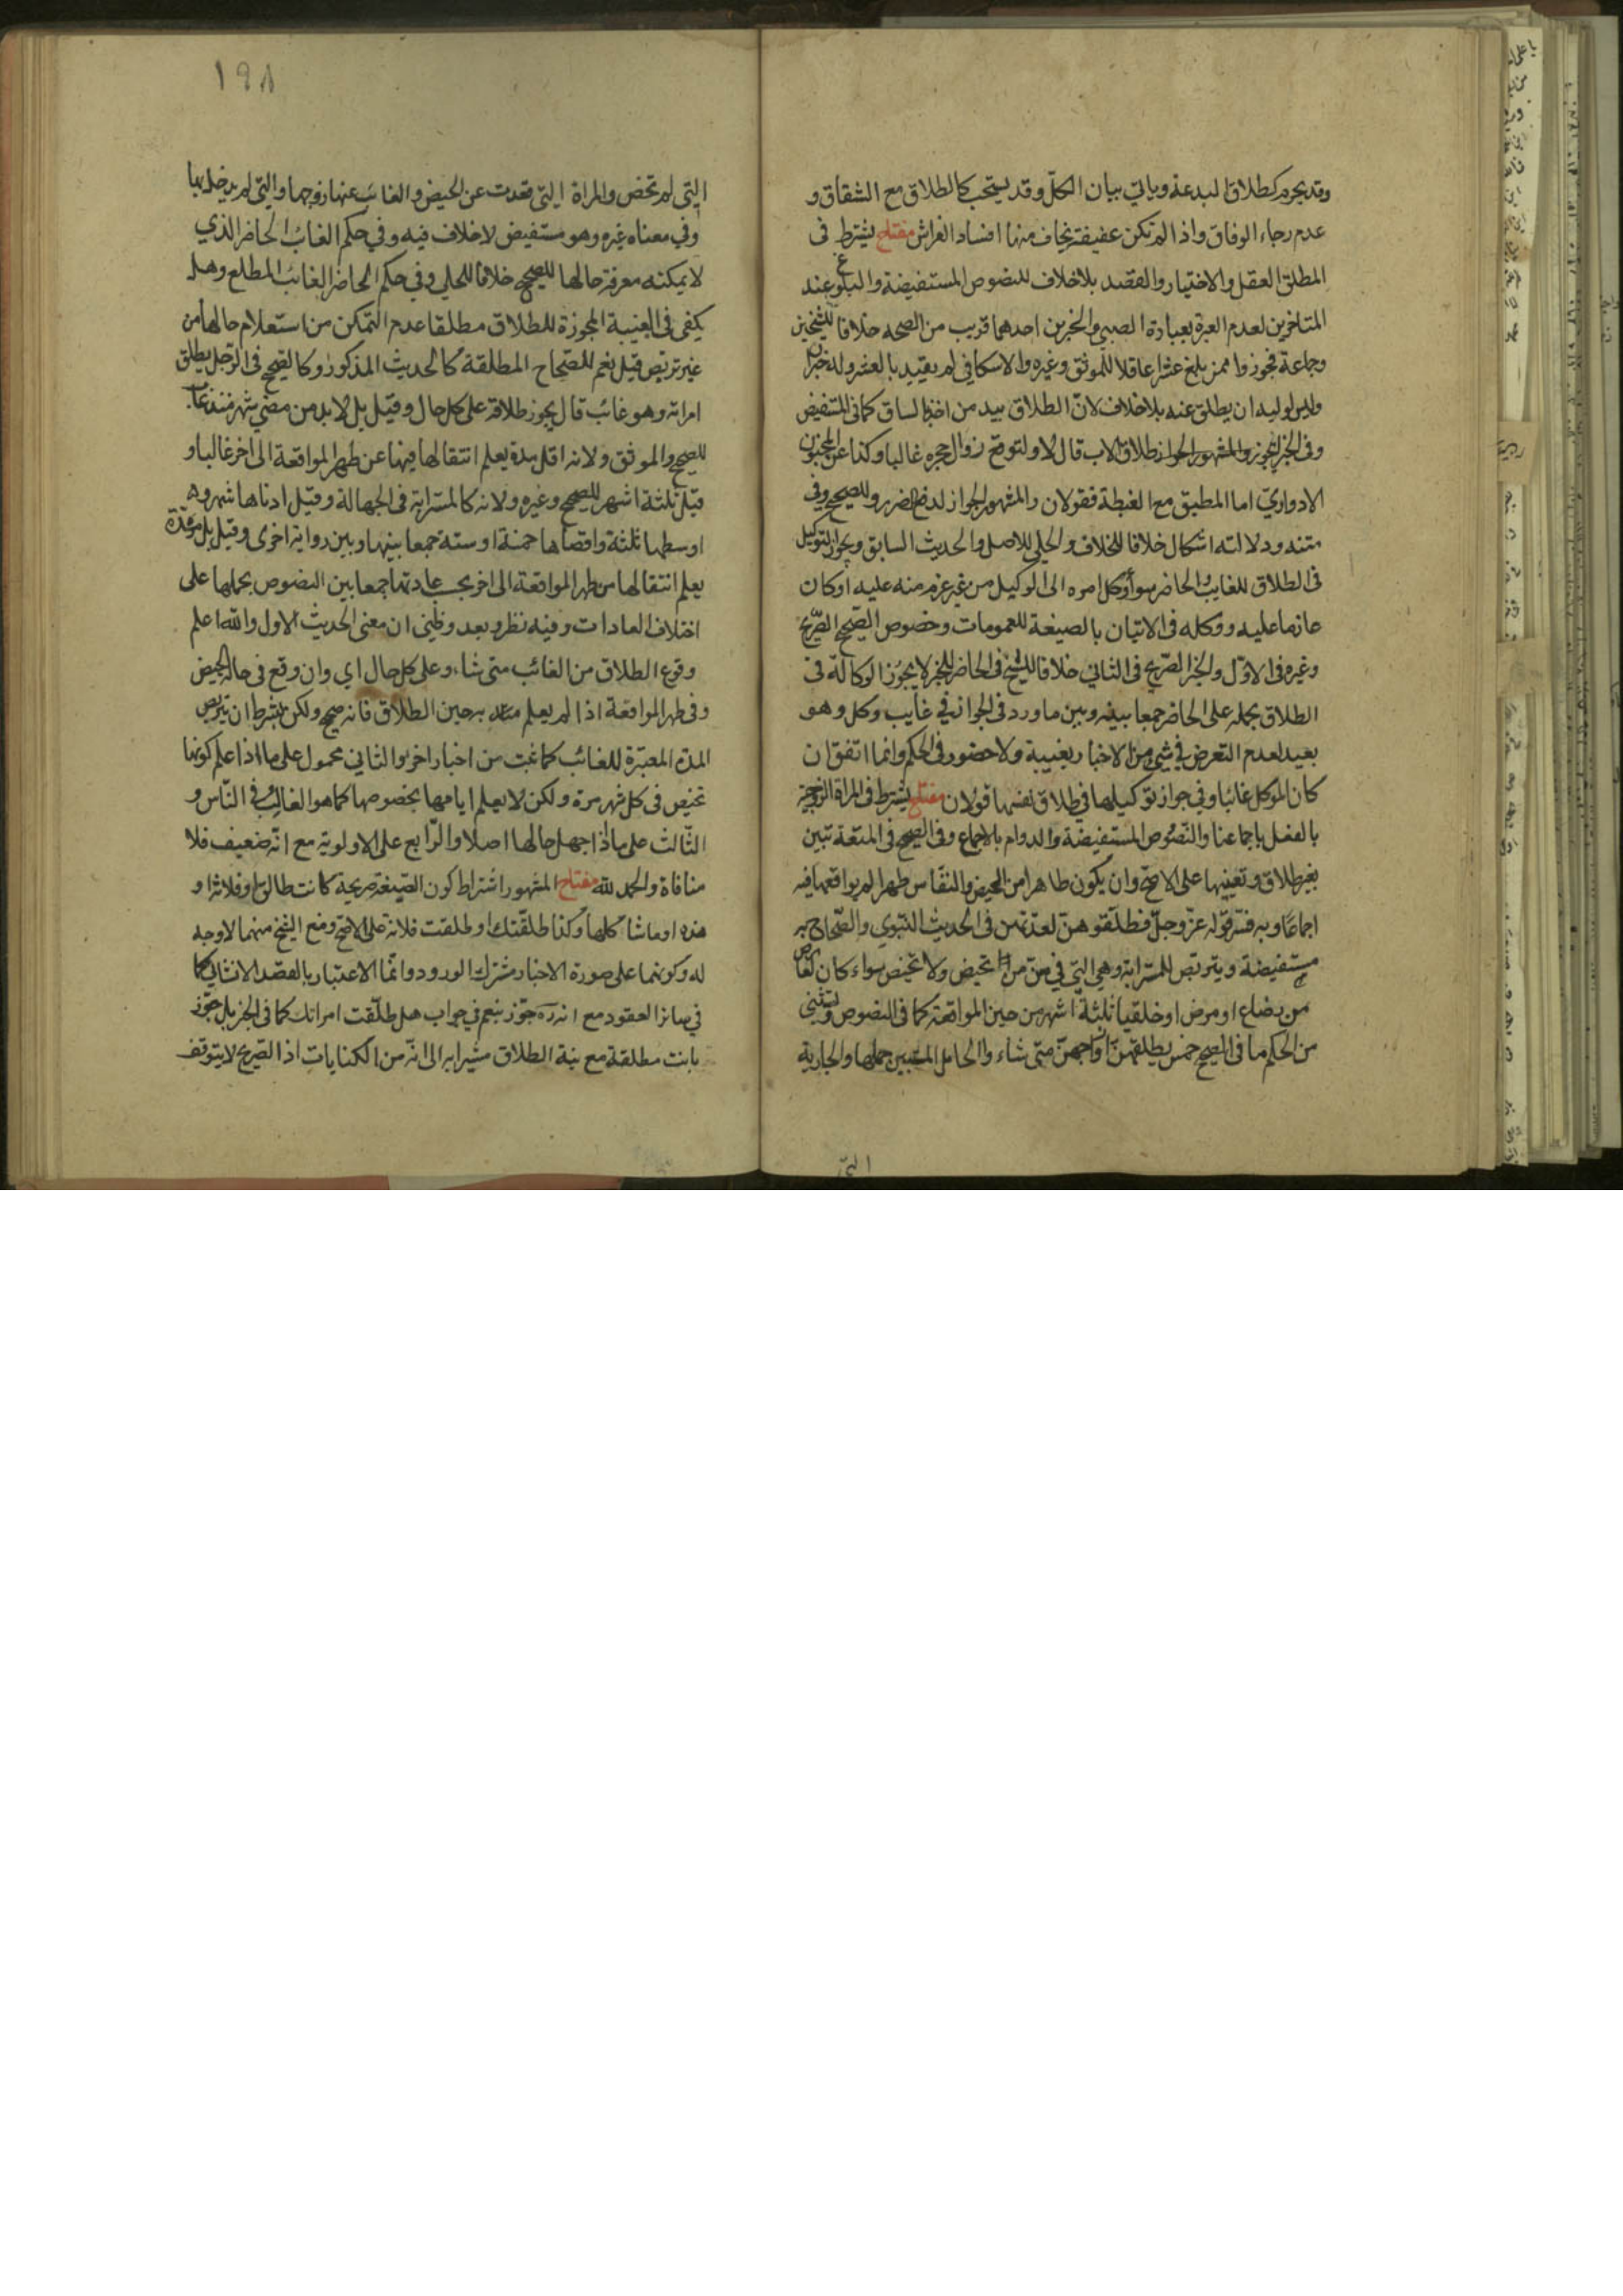 وقد يحرم كطلاق البدعة وياتي بيان الكل وقد يستحب كالطلاق مع الشقاق و
عدم رجاء الوفاق واذا لم تكن عفيفة يخاف منها افساد الفراش مفتاح يشترط فى
المطلق العقل والاختيار والقصد بلاخلاف للنصوص المستفيضة والبلوغ عند
المتاخرين لعدم العبرة بعبارة الصبي والخبرين احدهما قريب من الصحه خلافا للشيخين
وجاعة فجوزوا ممن بلغ عشرا عاقلا للموثق وغيره والاسكافي لم يقيد بالعشر وله خبران
وليس لوليه ان يطلق عنه بلاخلاف لانّ الطلاق بيد من اخذ بالساق كما فى المستفيض
وفى الخبر ايجوز طلاق الاب قال لا ولتوقع زوال حجره غالبا وكذا عن المجنون
الادواريّ اما المطبق مع الغبطة فقولان والمشهور الجواز لدفع الضرر وللصحيح وفى
متنه ودلالته اشكال خلافا للخلاف والحلي للاصل والحديث السابق ويجوز التوكيل
فى الطلاق للغايب والحاضر سواء وكل امره الى الوكيل من غير عزم منه عليه اوكان
عازما عليه ووكله فى الاتيان بالصيغة للعمومات وخصوص الصّحيح الصّريح
وغيره فى الاوّل والخبر الصّريح فى الثاني خلافا للشيخ فى الحاضر للخبر لا يجوز الوكالة فى
الطلاق بحمله على الحاضر جمعا بينه وبين ماورد فى الجواز في غايب وكل وهو
بعيد لعدم التعرض في شيء من الاخبار بغيبة ولاحضور فى الحكم وانما اتفق ان
كان الموكل غائبا وفي جواز توكيلها في طلاق نفسها قولان مفتاح يشترط فى المراة الزوجية
بالفعل باجماعنا والنّصوص المستفيضة والدوام بالاجماع وفى الصحيح فى المتعة تبين
بغير طلاق وتعيينها على الاصحّ وان يكون طاهرا من الحيض والنفاس طهرا لم يواقعها فيه
اجماعًا وبه فسّر قوله عزّ وجلّ فطلّقوهنّ لعدّتهن فى الحديث النّبوي والصّحاح به
مستفيضة ويتربّص للمسترابة وهي التي في سنّ من تحيض ولا تحيض سواء كان لعارض
من رضاع او مرض او خلقيا ثلثة اشهر من حين المواقعة كما فى النصوص ويستثنى
من الحكم ما فى الصحيح خمس يطلقهنّ ازواجهنّ متى شاء والحامل المستبين حملها والجارية
التي
١٩٨
التي لم تحض والمراة التي قعدت عن الحيض والغائب عنها زوجها والتي لم يدخل بها
وفي معناه غيره وهو مستفيض لاخلاف فيه وفي حكم الغائب الحاضر الذي
لايمكنه معرفة حالها للصحيح خلافا للحلي وفي حكم الحاضر الغائب المطلع وهل
يكفى فى الغيبة المجوزة للطلاق مطلقا عدم التمكن من استعلام حالها من
غير تربّص قيل نعم للصّحاح المطلقة كالحديث المذكور وكالصّحيح فى الرّجل يطلق
امراته وهو غائب قال يجوز طلاقه على كل حال وقيل بل لابد من مضي شهر منذ غاب
للصحيح والموثق ولانه اقل مدة يعلم انتقالها فيها عن طهر المواقعة الى اخر غالبا و
قيل ثلثة اشهر للصحيح وغيره ولانه كالمسترابة فى الجهالة وقيل ادناها شهر و
اوسطها ثلثة واقصاها خمسة او ستة جمعا بينها وبين رواية اخرى وقيل بل مدّة
يعلم انتقالها من طهر المواقعة الى اخر بحسب عادتها جمعا بين النصوص بحملها على
اختلاف العادات وفيه نظر وبعد وظنّي ان معنى الحديث الاول والله اعلم
وقوع الطلاق من الغائب متى شاء وعلى كل حال اي وان وقع فى حال الحيض
وفى طهر المواقعة اذا لم يعلم به حين الطلاق فانه صحيح ولكن بشرط ان يتربص
المدة المعتبرة للغائب كما ثبت من اخبار اخر والثاني محمول على ما اذا علم كونها
تحيض فى كل شهر مرة ولكن لا يعلم ايامها بخصوصها كما هو الغالب فى النّاس و
الثّالث على ما اذا جهل حالها اصلا والرّابع على الاولوية مع انّه ضعيف فلا
منافاة والحمد لله مفتاح المشهور اشتراط كون الصّيغة صريحة كانت طالق او فلانة او
هذه او ماشاكلها وكذا طلقّتك او طلقت فلانة على الاصحّ ومنع الشيخ منهما لاوجه
له وكونهما على صورة الاخبار مشترك الورود وانّما الاعتبار بالقصد الانشائي كما
في سائر العقود مع انه ره جوّز بنعم في جواب هل طلّقت امراتك كما فى الخبر بل جوّز
بانت مطلقة مع نية الطلاق مشيرا به الى انّه من الكنايات اذ الصّريح لايتوقف